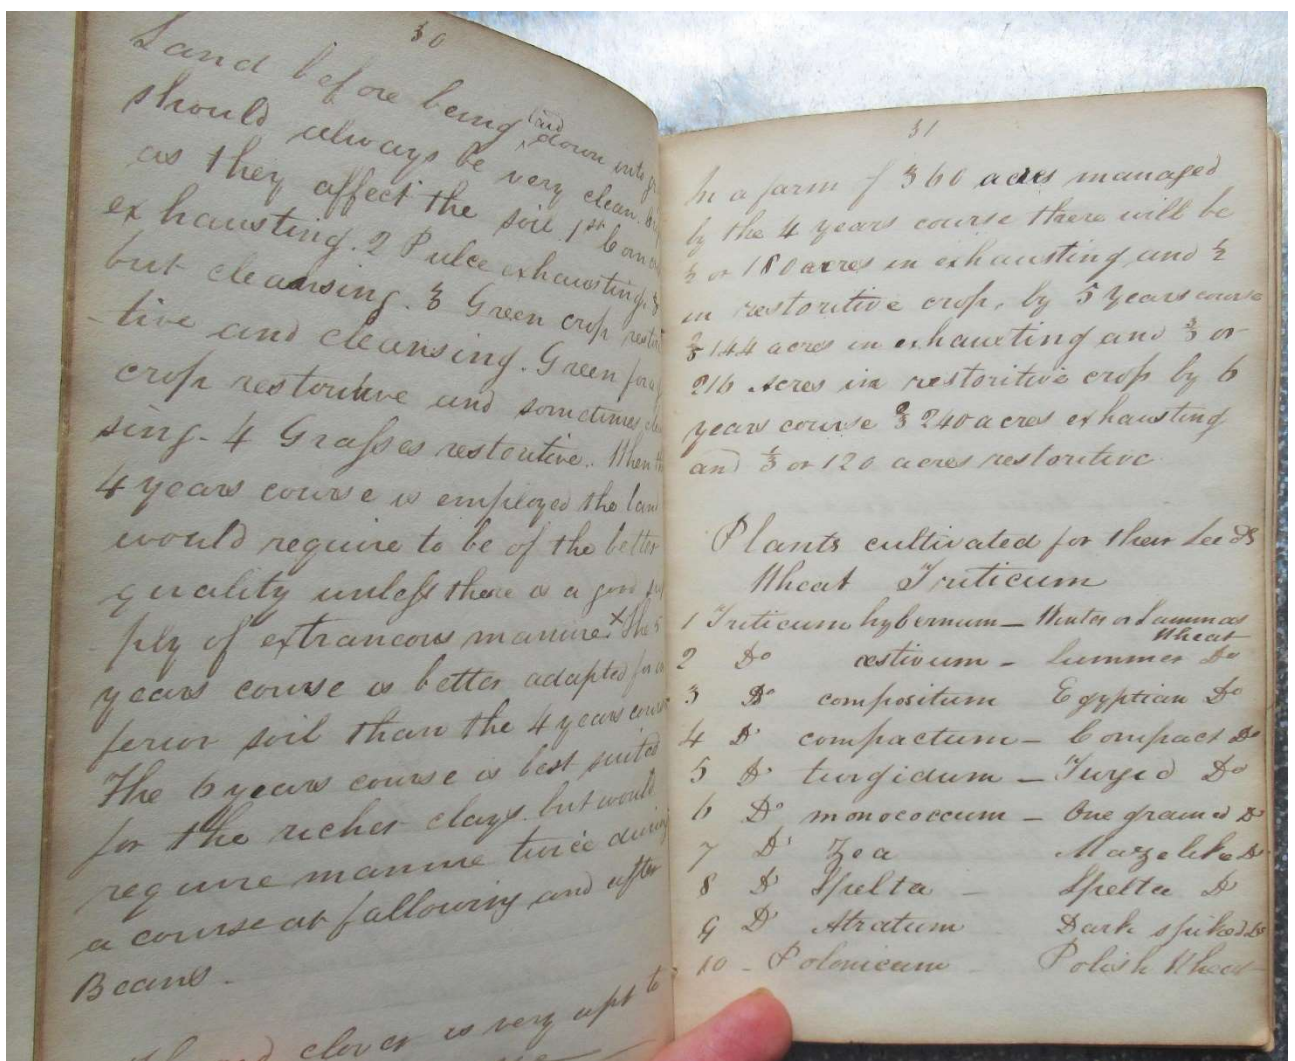 30
Land before being laid down into
should always be very clean.
as they affect the soil 1st Corn
exhausting. 2 Pulce exhausting &
but cleansing. 3 Green crop restori
-tive and cleansing. Green
crop restoritive and sometimes
sing. 4 Grasses restoritive. When
4 years course is employed the
would require to be of the better
quality unless there is a good
ply of extraneous manure. x The 5
years course is better adapted
ferior soil than the 4 years
The 6 years course is best suited
for the richer clays but would
require manure twice during
a course at fallowing and after
Beans.
clover is very apt to
31
In a farm of 360 acres managed
by the 4 years course there will be
½ or 180 acres in exhausting and ½
in restoritive crop, by 5 years course
⅖ 144 acres in exhausting and ⅗ or
216 acres in restoritive crop by 6
years course ⅔ 240 acres exhausting
and ⅓ or 120 acres restoritive
Plants cultivated for their Seeds
Wheat Triticum
1 Triticum hybernum – Winter or Lammas
Wheat
2 Do æstivum – Summer Do
3 Do compositum Egyptian Do
4 Do compactum – Compact Do
5 Do turgidum – Turgid Do
6 Do monococcum – One grained Do
7 Do Zea Maze like Do
8 Do Spelta – Spelta Do
9 Do Atratum Dark spiked Do
10 – Polonicum – Polish Wheat